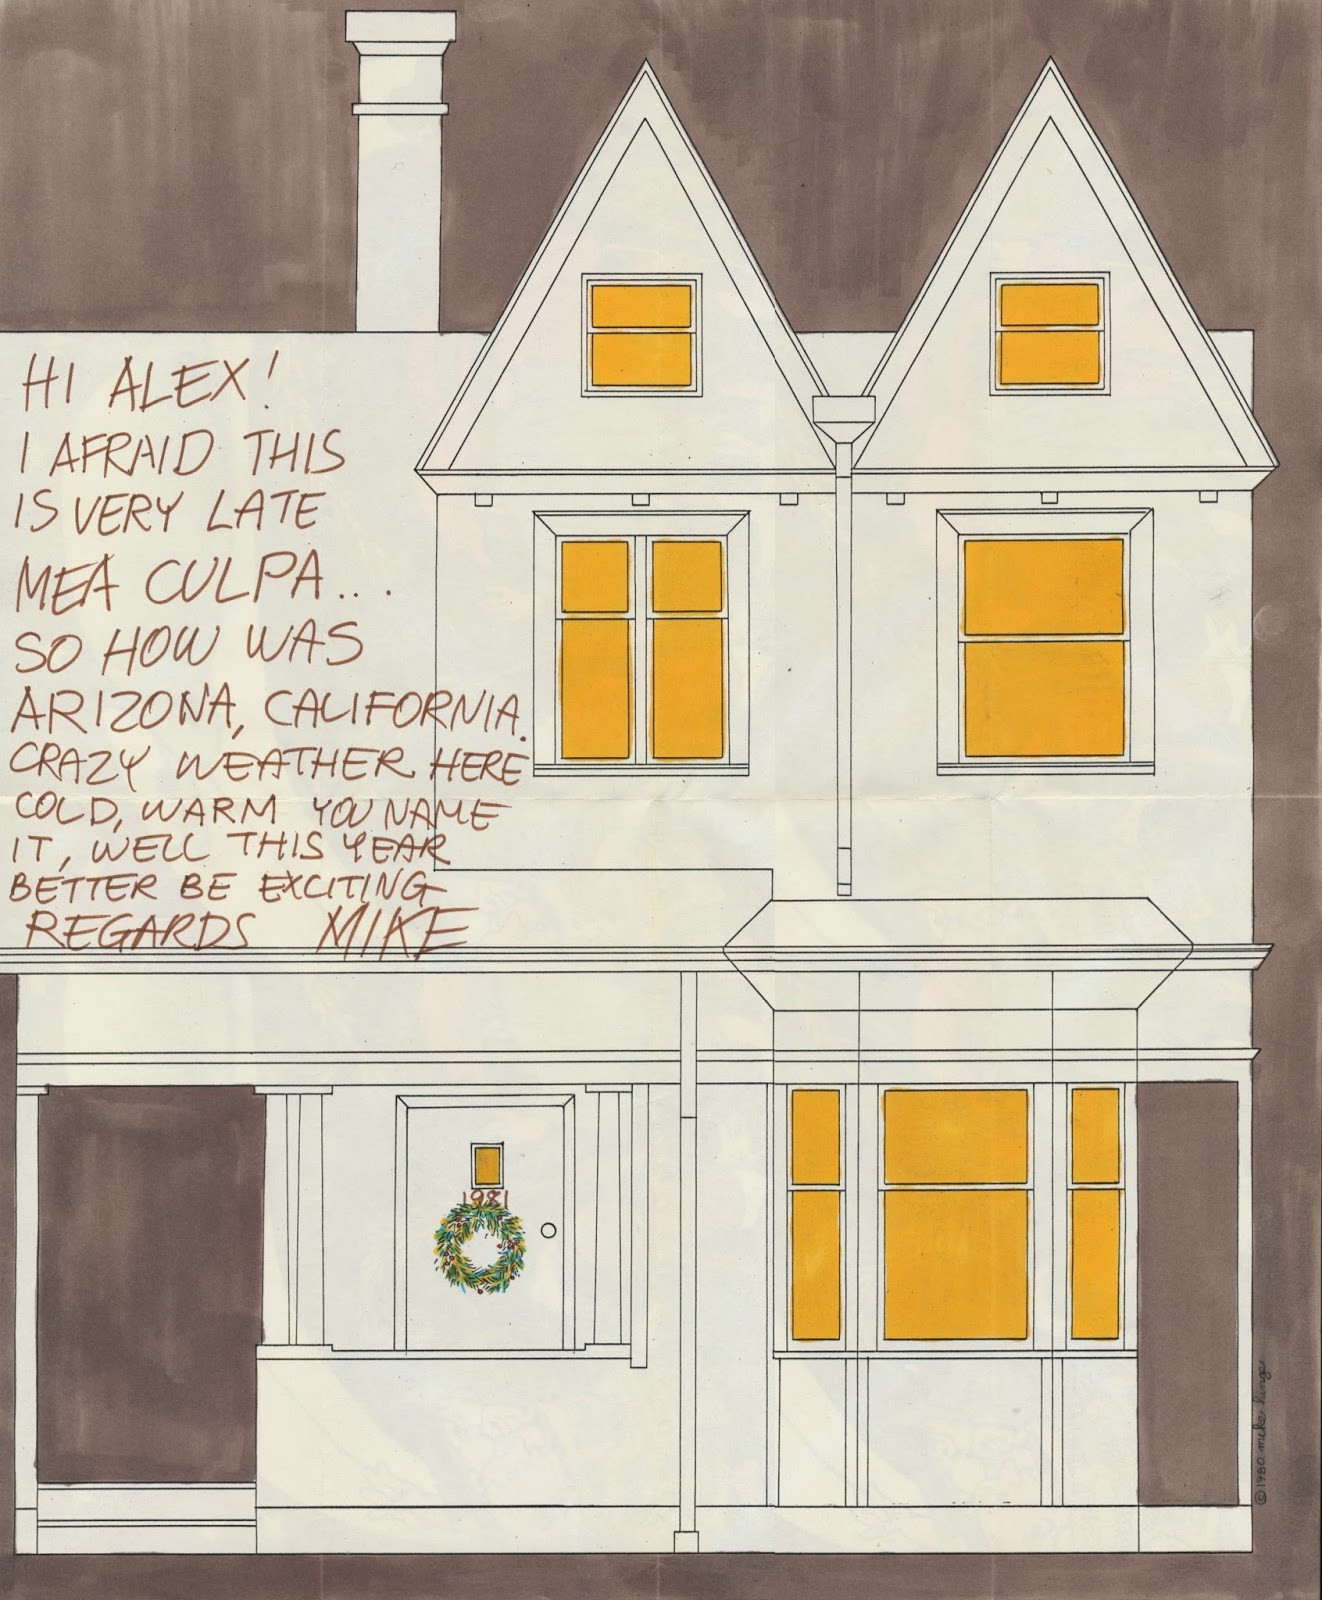 HI ALEX!
I AFRAID THIS
IS VERY LATE
MEA CULPA...
SO HOW WAS
ARIZONA, CALIFORNIA.
CRAZY WEATHER HERE
COLD, WARM YOU NAME
IT, WELL THIS YEAR
BETTER BE EXCITING
REGARDS MIKE
1981
© 1980 mike hinge